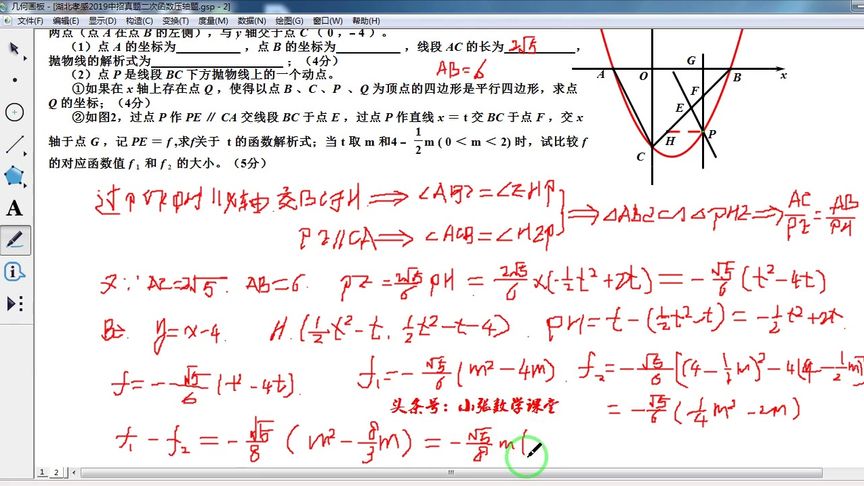 几何画板 - [湖北孝感2019中招真题二次函数压轴题.gsp - 2]
文件(F) 编辑(E) 显示(D) 构造(C) 变换(T) 度量(M) 数据(N) 绘图(G) 窗口(W) 帮助(H)
两点（点 A 在点 B 的左侧），与 y 轴交于点 C（ 0，- 4 ）.
（1）点 A 的坐标为 ，点 B 的坐标为 ，线段 AC 的长为 2√5 ，
抛物线的解析式为 ；（4分） AB=6
（2）点 P 是线段 BC 下方抛物线上的一个动点。
①如果在 x 轴上存在点 Q ，使得以点 B 、C 、P 、Q 为顶点的四边形是平行四边形，求点
Q 的坐标；（4分）
②如图2，过点 P 作 PE ∥ CA 交线段 BC 于点 E ，过点 P 作直线 x = t 交 BC 于点 F ，交 x
轴于点 G ，记 PE = f ,求f关于 t 的函数解析式；当 t 取 m 和4 - 1/2 m ( 0 < m < 2) 时，试比较 f
的对应函数值 f₁ 和 f₂ 的大小。（5分）
A O G B x
F
E
H P
C
过P作PH∥x轴 交BC于H ⟹ ∠ABC=∠EHP
PE∥CA ⟹ ∠ACB=∠HEP
⟹ △ABC∽△PHE ⟹ AC/PE = AB/PH
又∵ AC=2√5. AB=6. PE = 2√5/6 PH = 2√5/6 ×(-1/2t²+2t) = -√5/6 (t²-4t)
BC: y=x-4. H (1/2t²-t, 1/2t²-t-4). PH=t-(1/2t²-t) = -1/2t²+2t.
f=-√5/6 (t²-4t). f₁=-√5/6 (m²-4m). f₂=-√5/6 [(4-1/2m)²-4(4-1/2m)]
头条号：小张数学课堂
= -√5/6 (1/4m²-2m)
f₁-f₂ = -√5/8 (m²-8/3m) = -√5/8 m(
A
1 2